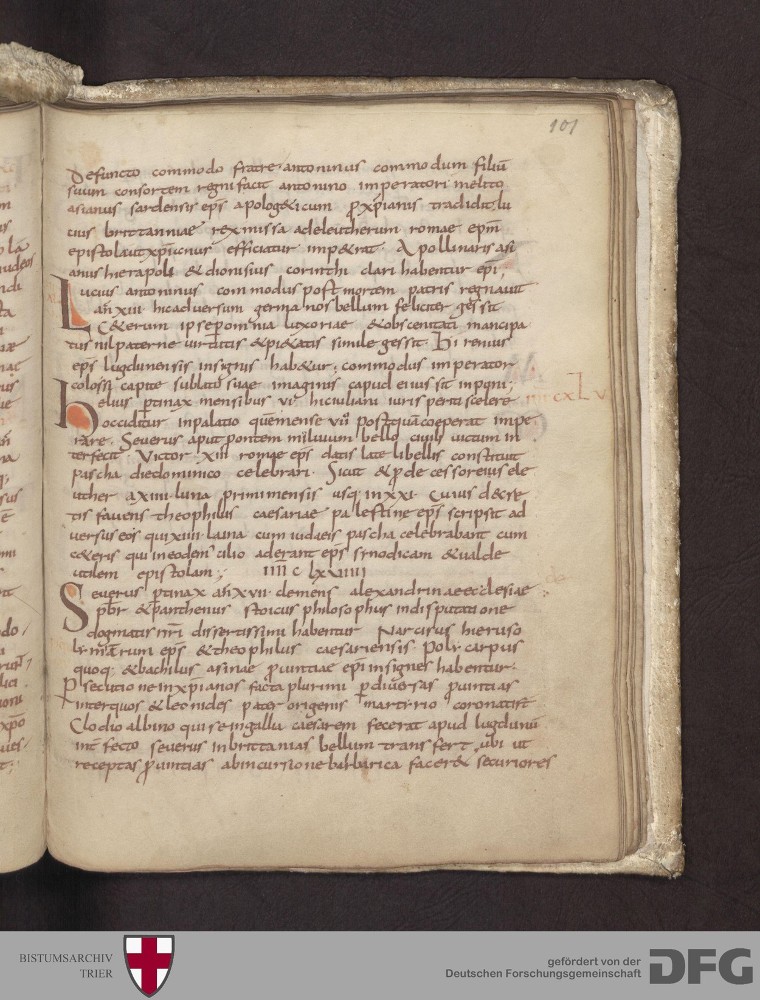 101
Defuncto commodo fratre antoninus commodum filiū
suum consortem regni facit antonino imperatori melito
asianus sardensis eps apolog&icum p xpianis tradidit lu
cius brittanniae rex missa ad eleutherum romae epm
epistola ut xpianus efficiatur imp&rat. Apollinaris asi
anus hierapoli & dionisius corinthi clari habentur epi;
Lucius antoninus commodus post mortem patris regnavit
añ xiii hic adversum germanos bellum feliciter gessit
C&erum ipse p omnia luxoriae & obscenitati mancipa
tus nil paterne virtutis & pi&atis simile gessit. Hirenius
eps lugdunensis insignis hab&ur; commodus imperator
colossi capite sublato suae imaginis capud ei iussit inponi;
helius ptinax mensibus vi. hic iuliani iuris periti scelere
occiditur in palatio quē mense vii postquā coeperat impe
rare. Severus aput pontem milvium bello civili victum in
terfecit. Victor xiii romae eps datis late libellis constituit
pascha die dominico celebrari. Sicut & pdecessor eius ele
uther a xiiii luna primi mensis usq; in xxi. Cuius decre
tis favens theophilus caesariae palestine eps scripsit ad
versus eos qui xiiii luna cum iudaeis pascha celebrabant cum
c&eris qui in eodem cilio aderant eps sinodicam & valde
utilem epistolam; IIII C lxxiiii
Severus ptinax añ xvii. clemens alexandrinae ecclesiae
pbr & panthenus stoicus philosophus in disputatione
dogmatis nri dissertissimi habentur Narcisus hieruso
limarum eps & theophilus caesariensis. Policarpus
quoq; & bachilus asinae pvintiae epi insignes habentur.
Psecutione in xpianos facta plurimi p diversas pvintias
inter quos & leonides pater origenis martirio coronatur
Clodio albino qui se in gallia caesarem fecerat apud lugdunū
intfecto severus in brittanias bellum transfert. ubi ut
receptas pvintias ab incursione barbarica facer& securiores
CXLV
BISTUMSARCHIV
TRIER
gefördert von der
Deutschen Forschungsgemeinschaft
DFG